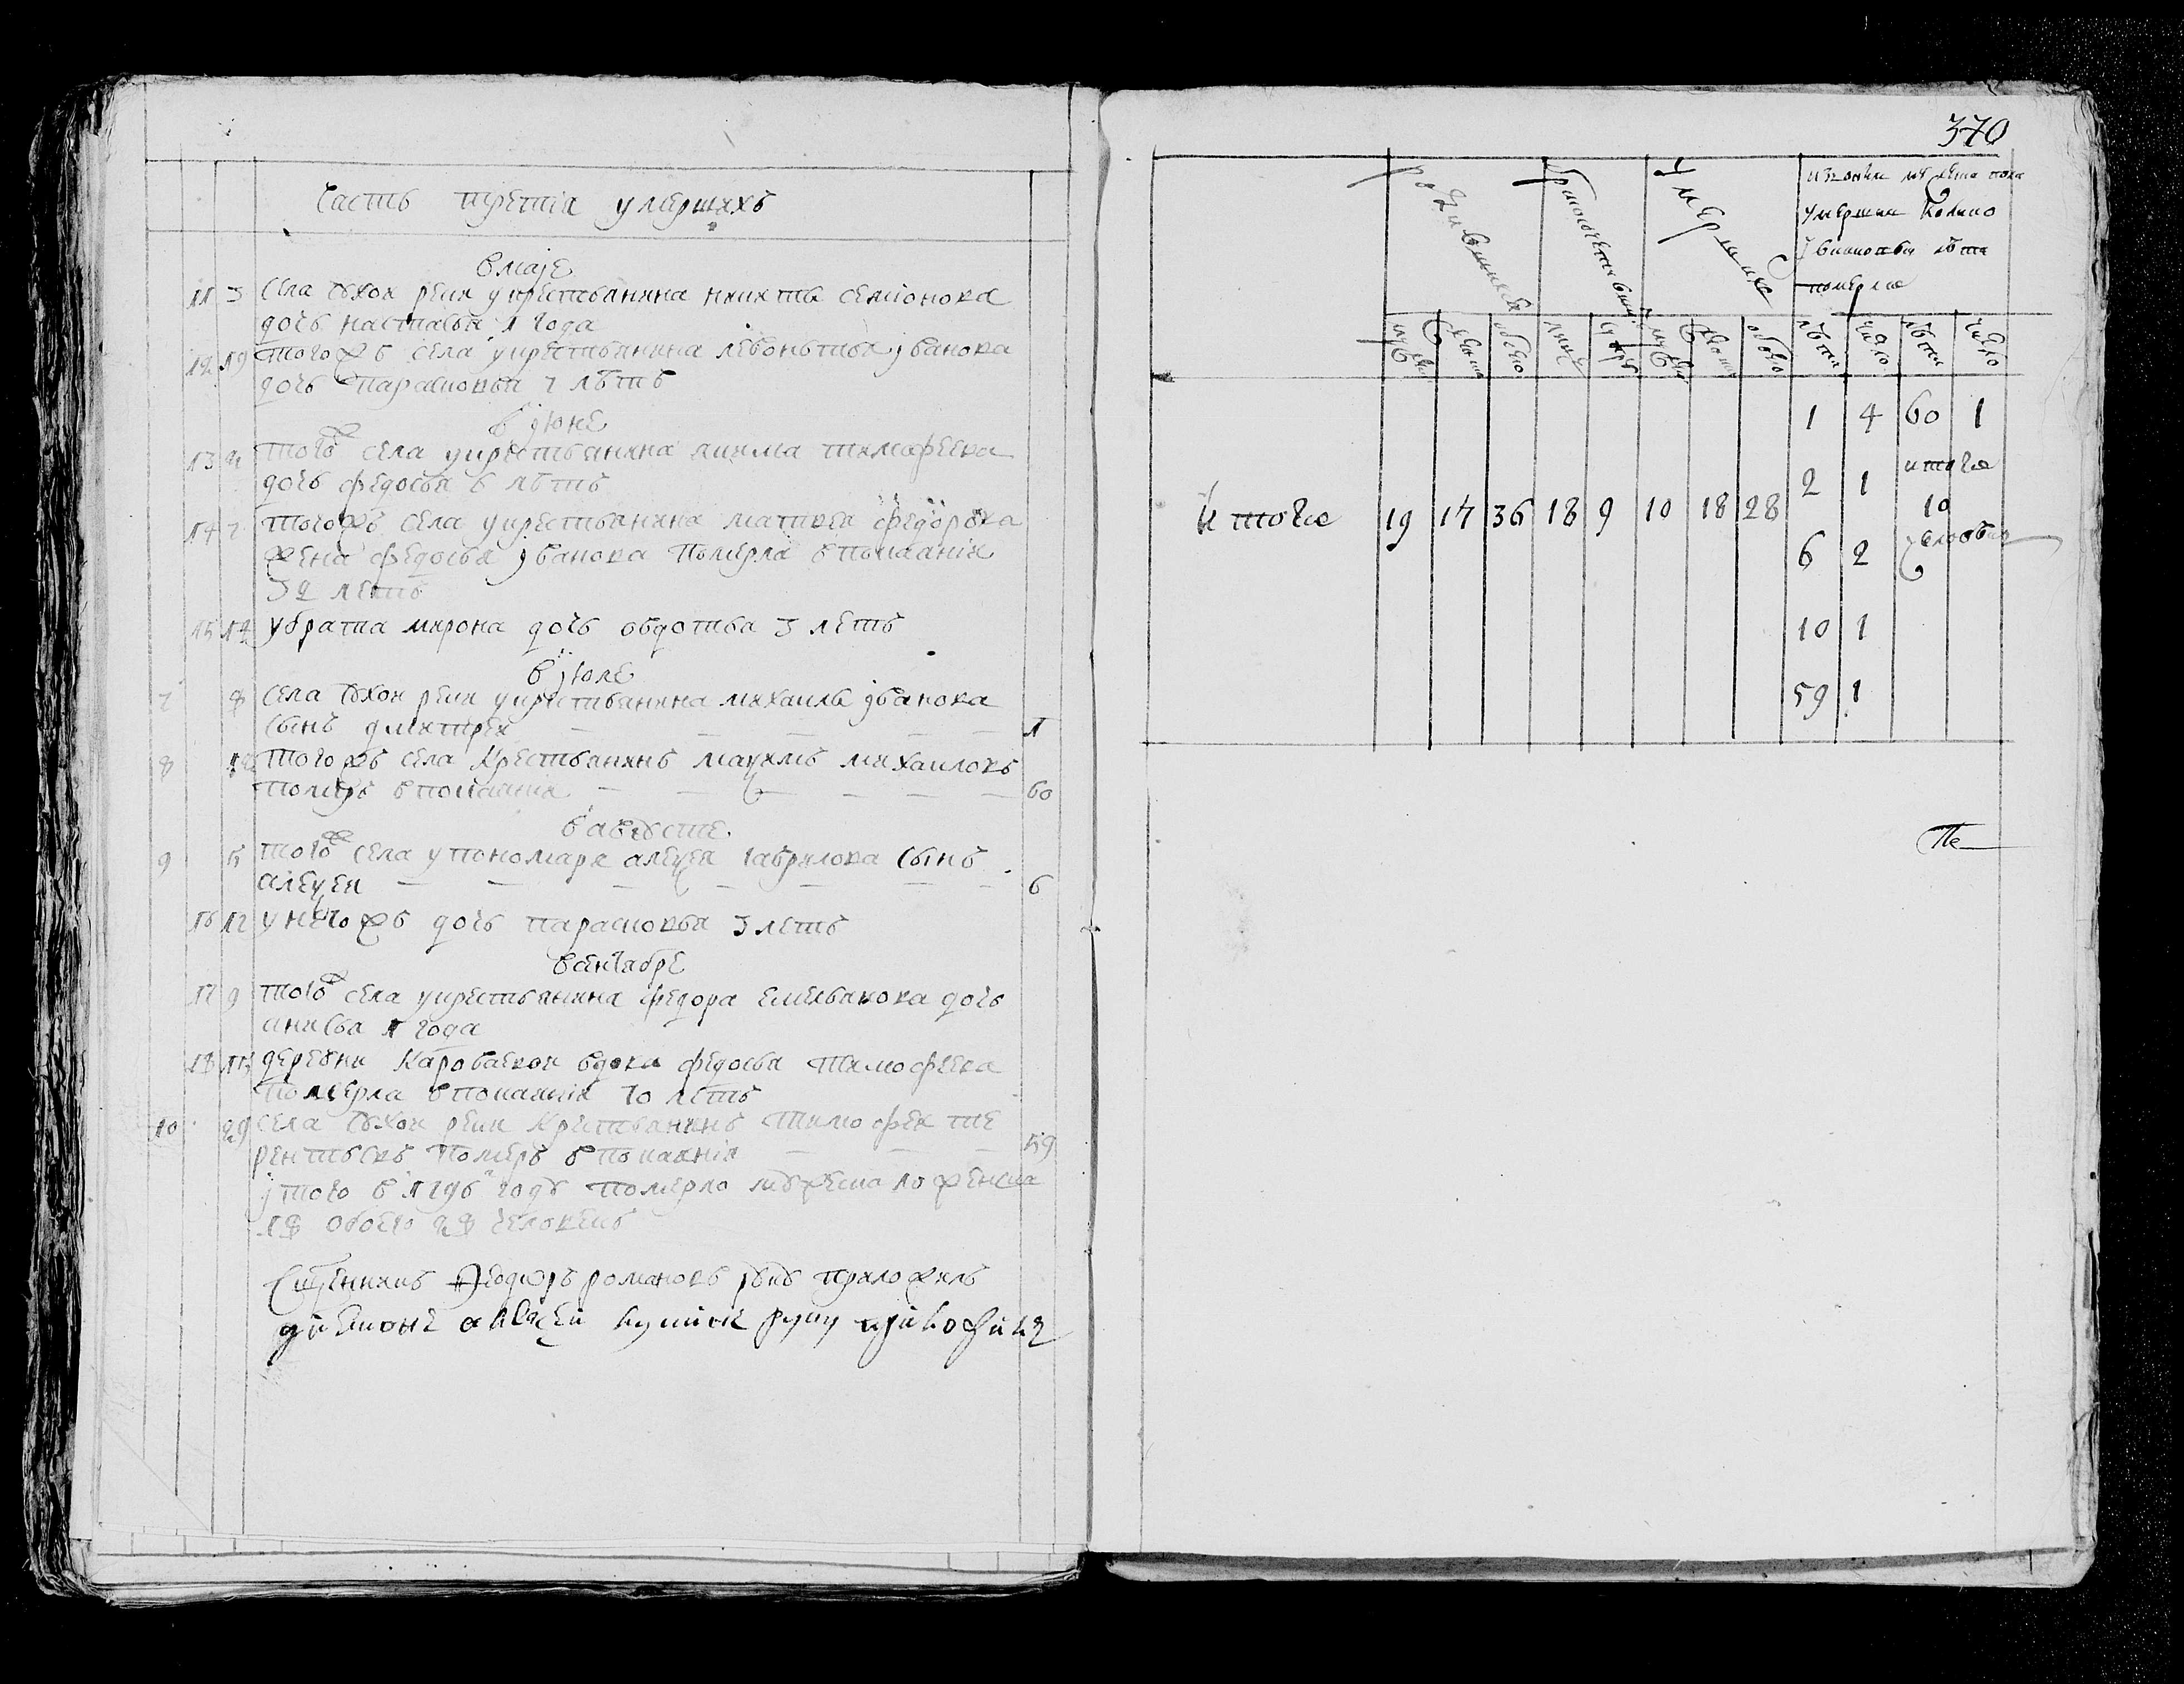 Часть третiя умершихъ
в маiе
11 3 села Сухои реки у крестьянина никиты семионова
дочь настасья 1 года
12 19 тогожъ села у крестьянина левонътья iванова
дочь парасковья 7 лѣтъ
в iюне
13 4 тогож села у крестьянина якима тимофеева
дочь федосья 6 лѣтъ
14 7 тогожъ села у крестьянина матвея федорова
жена федосья iванова померла в покаянiи
32 летъ
15 14 у брата мирона дочь овдотья 3 летъ
в iюле
7 8 села Сухои реки у крестьянина михаилы iванова
сынъ дмитреи 1
8 12 тогожъ села крестьянинъ маѯимъ михаиловъ
померъ в покаянии 60
в августе
9 5 тогож села у пономаря алеѯея гаврилова сынъ
алеѯеи 6
16 17 у негожъ дочь парасковья 3 летъ
в сентябре
17 9 тогож села у крестьянина федора емельянова дочь
анисья 1 года
18 15 деревни вдова федосья тимофеева
померла в покаянiи 70 летъ
10 29 села Сухои реки крестьянинъ тимофеи те
рентьевъ померъ в покаянiи 59
iтого в 1796 году померло мужеска 10 женска
18 обоего 28 человекъ
Сщенникъ Ѳеодоръ романовъ руку приложилъ
алеѯеи руку приложилъ
370
родившихся
умерших
мужеска женска обоего мужеска женска обоего лѣта число лѣта число
Итого 19 17 36 18 9 10 18 28
1 4 60 1
2 1 итого
10
6 2 человекъ
10 1
59 1
Пе